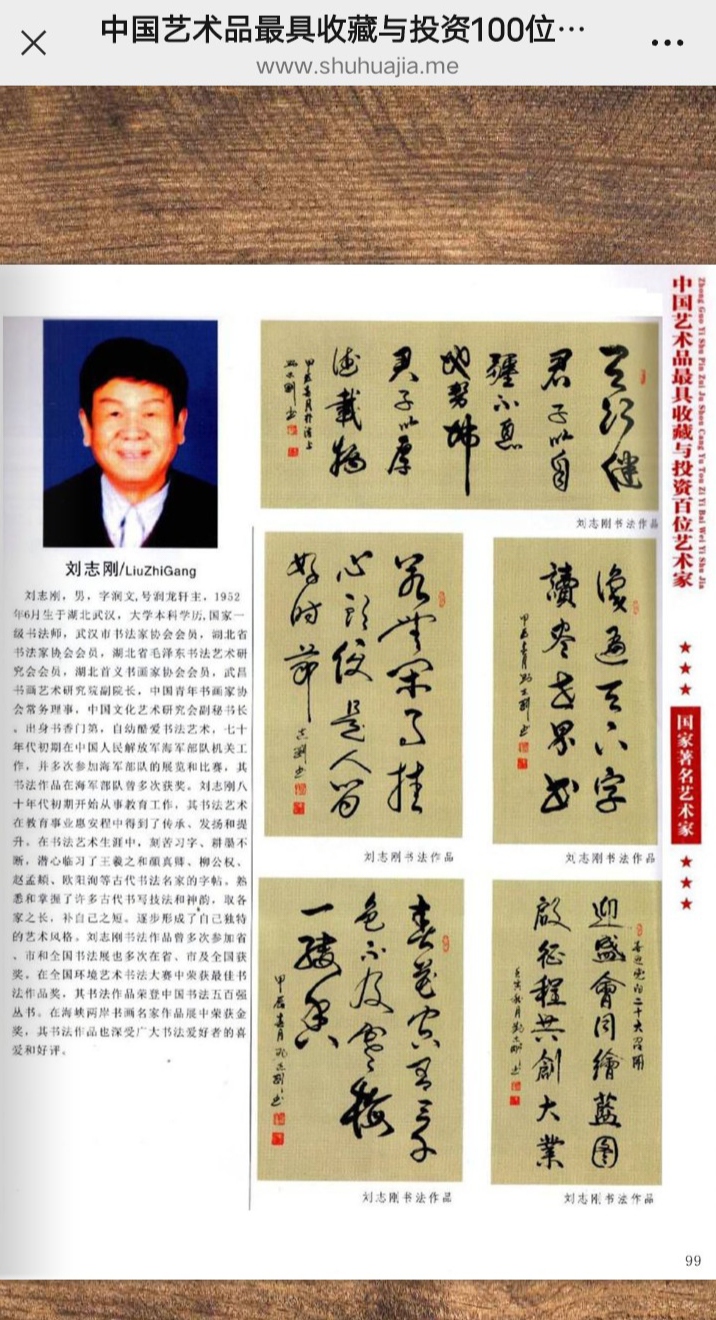 中国艺术品最具收藏与投资100位…
www.shuhuajia.me
刘志刚/LiuZhiGang
刘志刚，男，字润文,号润龙轩主，1952
年6月生于湖北武汉，大学本科学历,国家一
级书法师，武汉市书法家协会会员，湖北省
书法家协会会员，湖北省毛泽东书法艺术研
究会会员，湖北首义书画家协会会员，武昌
书画艺术研究院副院长，中国青年书画家协
会常务理事，中国文化艺术研究会副秘书长
。出身书香门第，自幼酷爱书法艺术，七十
年代初期在中国人民解放军海军部队机关工
作，并多次参加海军部队的展览和比赛，其
书法作品在海军部队曾多次获奖。刘志刚八
十年代初期开始从事教育工作，其书法艺术
在教育事业惠安程中得到了传承、发扬和提
升。在书法艺术生涯中，刻苦习字、耕墨不
断，潜心临习了王羲之和颜真卿、柳公权、
赵孟頫、欧阳洵等古代书法名家的字帖，熟
悉和掌握了许多古代书写技法和神韵，取各
家之长，补自己之短。逐步形成了自己独特
的艺术风格。刘志刚书法作品曾多次参加省
、市和全国书法展也多次在省、市及全国获
奖。在全国环境艺术书法大赛中荣获最佳书
法作品奖，其书法作品荣登中国书法五百强
丛书。在海峡两岸书画名家作品展中荣获金
奖，其书法作品也深受广大书法爱好者的喜
爱和好评。
天行健
君子以自
强不息
地势坤
君子以厚
德载物
甲辰春月於湖上
刘志刚书法作品
若无闲事挂
心头便是人间
好时节
志刚书
刘志刚书法作品
识遍天下字
讀尽世界书
刘志刚书法作品
春花官有三千
色不及雪梅
一缕香
甲辰春月刘志刚书
刘志刚书法作品
喜迎党的二十大召开
迎盛會同繪藍图
啟征程共創大業
壬寅秋月刘志刚书
刘志刚书法作品
Zhong Guo Yi Shu Pin Zui Ju Shou Cang Yu Tou Zi Yi Bai Wei Yi Shu Jia
中国艺术品最具收藏与投资百位艺术家
国家著名艺术家
99